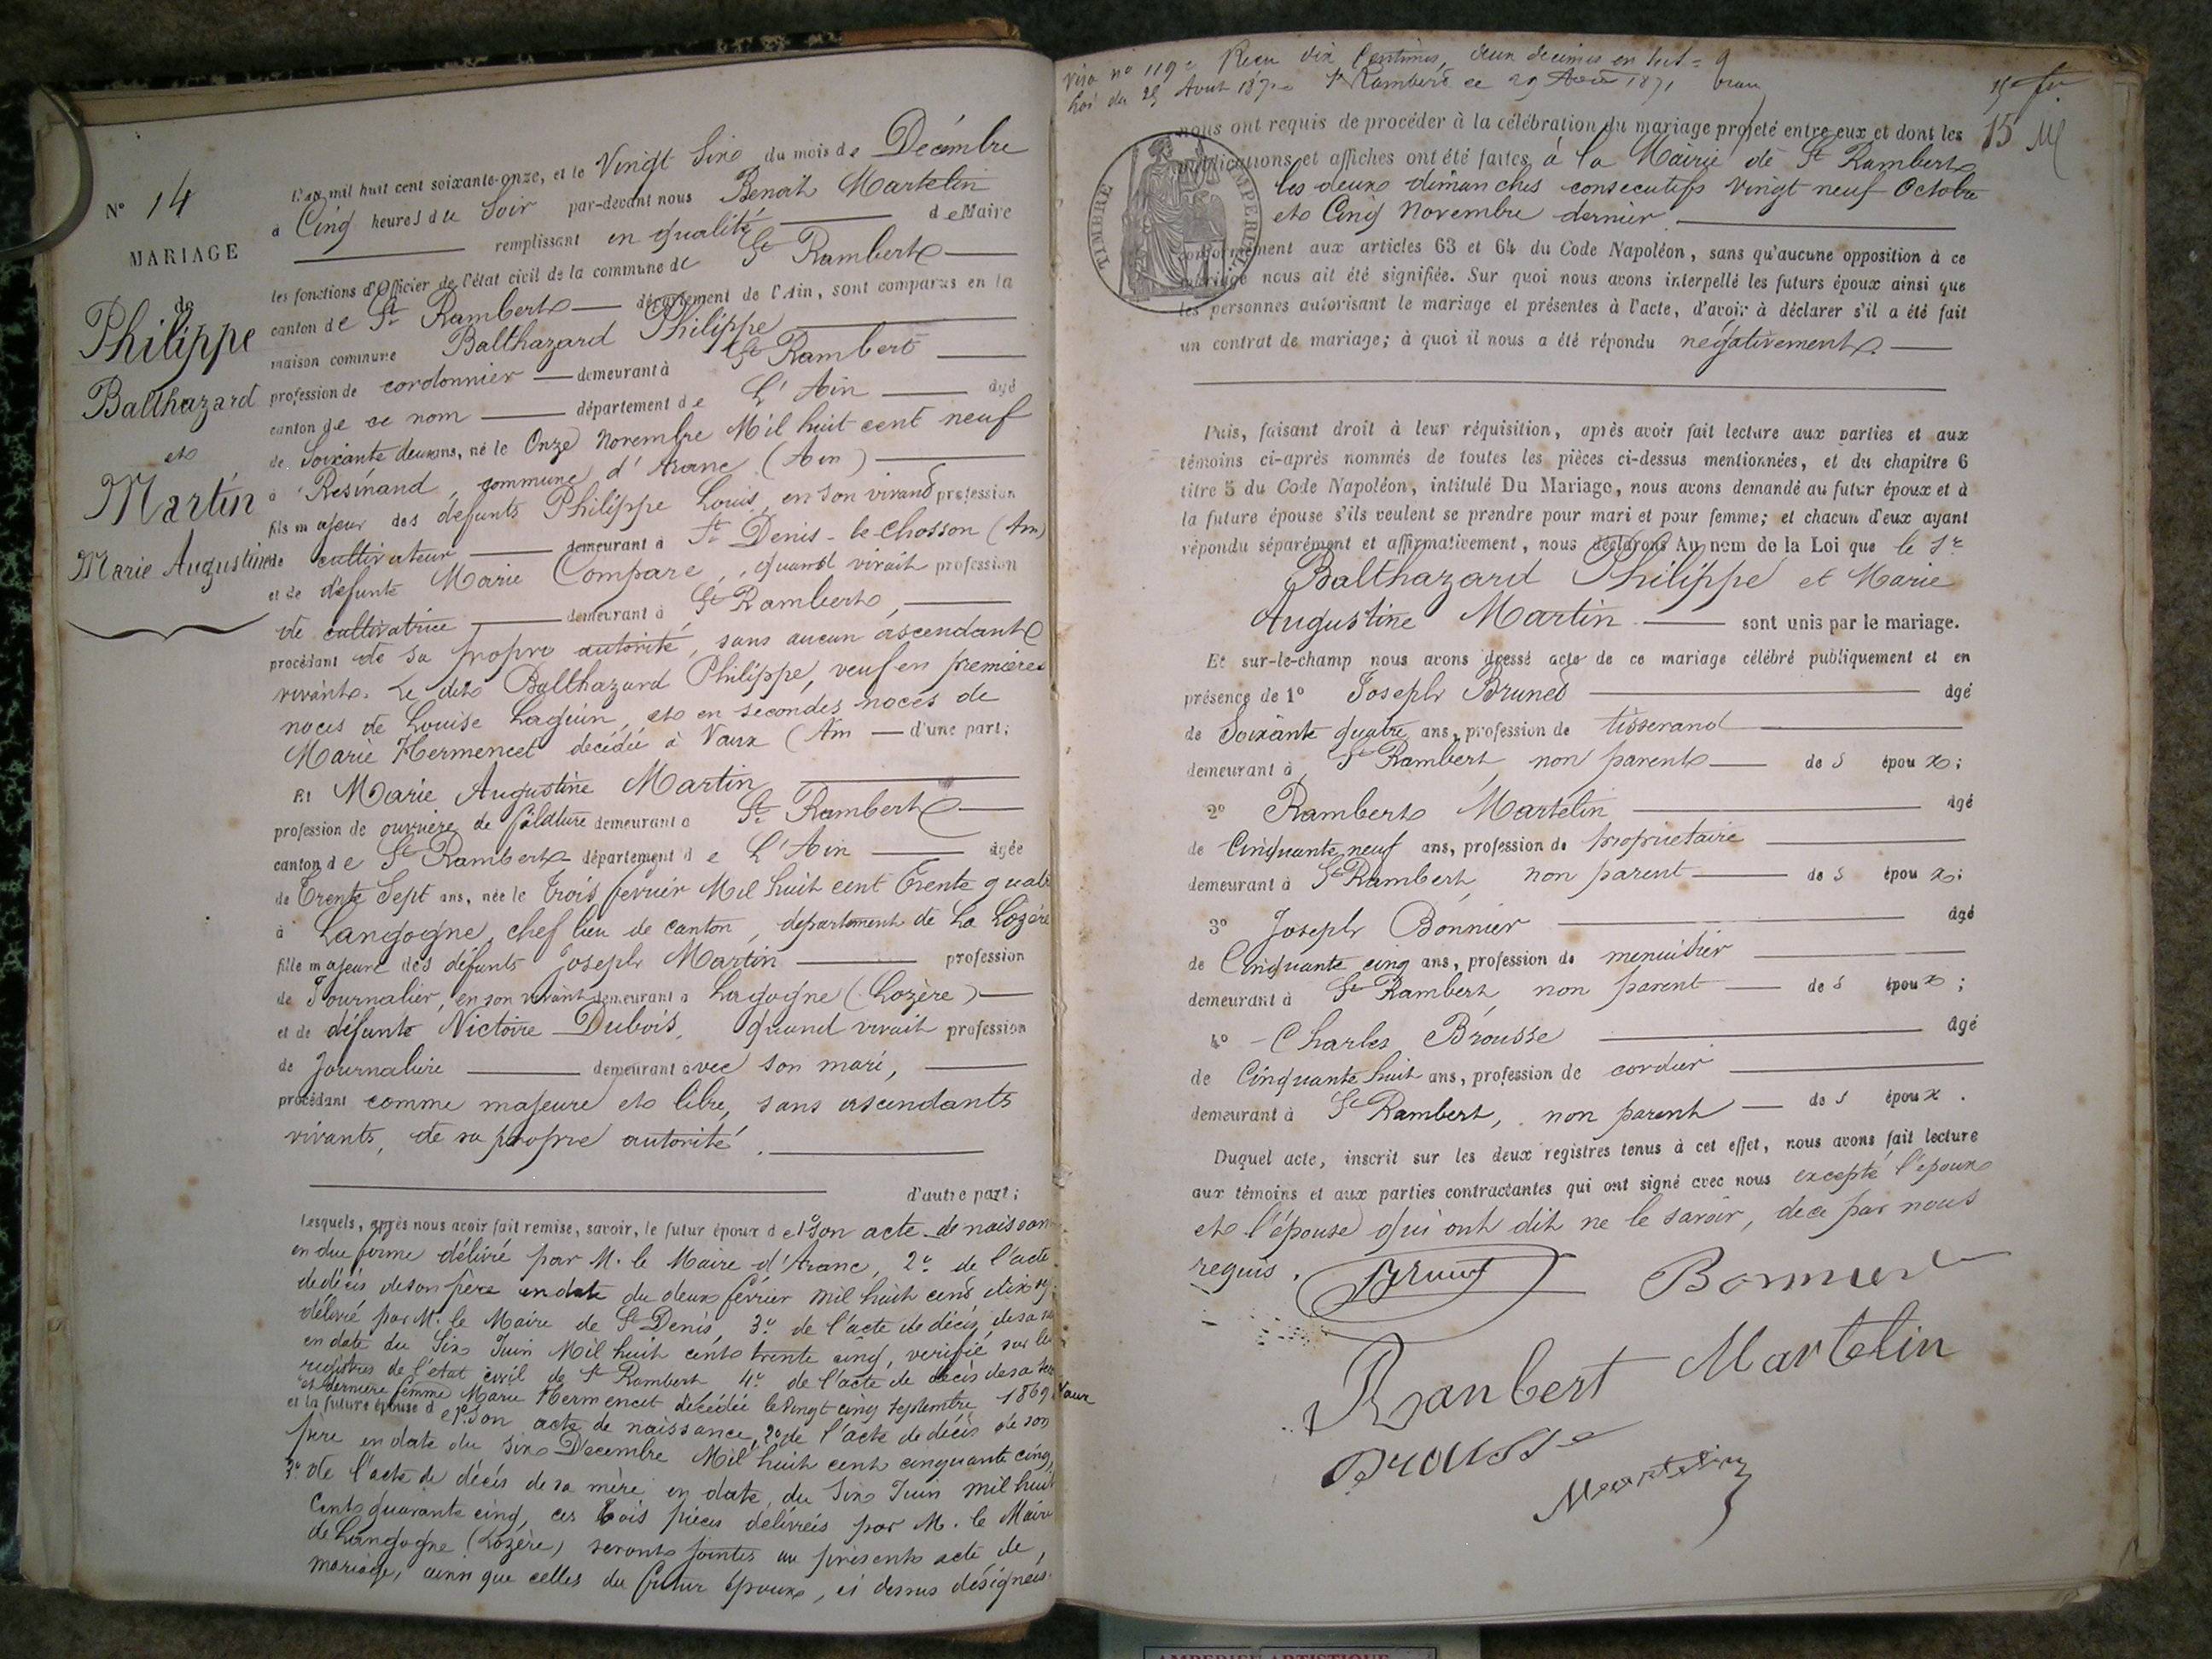 N° 14
MARIAGE
de
Philippe
Balthazard
et
Martin
Marie Augustine
L'an mil huit cent soixante-onze, et le Vingt Six du mois de Décembre
à Cinq heures du Soir par-devant nous Benoit Martelin
remplissant en qualité de Maire
les fonctions d'Officier de l'état civil de la commune de St Rambert
canton de St Rambert département de l'Ain, sont comparus en la
maison commune Balthazard Philippe
profession de cordonnier demeurant à St Rambert
canton de ce nom département de L'Ain âgé
de Soixante deux ans, né le Onze Novembre Mil huit cent neuf
à Resinand, commune d'Aranc (Ain)
fils majeur des défunts Philippe Louis, en son vivant profession
de cultivateur demeurant à St Denis-le-Chosson (Ain)
et de défunte Marie Compare, quand vivait profession
de cultivatrice demeurant à St Rambert,
procédant de sa propre autorité, sans aucun ascendant
vivant. Le dit Balthazard Philippe, veuf en premières
noces de Louise Laguin, et en secondes noces de
Marie Hermencet décédée à Vaux (Ain d'une part;
Et Marie Augustine Martin
profession de ouvrière de filature demeurant à St Rambert
canton de St Rambert département de L'Ain âgée
de Trente Sept ans, née le Trois fevrier Mil huit cent Trente quatre
à Langogne, chef lieu de canton, département de La Lozère
fille majeure des défunts Joseph Martin profession
de Journalier, en son vivant demeurant à Lagogne (Lozère)
et de défunte Victoire Dubois, quand vivait profession
de Journalière demeurant avec son mari,
procédant comme majeure et libre, sans ascendants
vivants, de sa propre autorité.
d'autre part;
Lesquels, après nous avoir fait remise, savoir, le futur époux de 1° son acte de naissance
en due forme délivré par M. le Maire d'Aranc, 2° de l'acte
de décès de son père en date du deux février mil huit cent dix
délivré par M. le Maire de St Denis, 3° de l'acte de décès de sa
en date du Six Juin Mil huit cent trente cinq, verifié sur les
registres de l'état civil de St Rambert 4° de l'acte de décès de sa
et dernière femme Marie Hermencet décédée le Vingt cinq Septembre 1869 Vaux
et la future épouse de 1° son acte de naissance, 2° de l'acte de décès de son
père en date du Six Décembre Mil huit cent cinquante cinq,
3° de l'acte de décès de sa mère en date du Six Juin mil huit
cent quarante cinq, ces trois pièces délivrées par M. le Maire
de Langogne (Lozère) seront jointes au présent acte de
mariage, ainsi que celles du futur époux, ci dessus désignées.
Visa n° 119 Reçu dix Centimes, deux decimes en
Loi du 23 Aout 1871 St Rambert ce 29 1871
15
TIMBRE IMPERIAL
nous ont requis de procéder à la célébration du mariage projeté entre eux et dont les
publications et affiches ont été faites à la Mairie de St Rambert
les deux dimanches consecutifs vingt neuf Octobre
et Cinq Novembre dernier.
conformément aux articles 63 et 64 du Code Napoléon, sans qu'aucune opposition à ce
mariage nous ait été signifiée. Sur quoi nous avons interpellé les futurs époux ainsi que
les personnes autorisant le mariage et présentes à l'acte, d'avoir à déclarer s'il a été fait
un contrat de mariage; à quoi il nous a été répondu négativement.
Puis, faisant droit à leur réquisition, après avoir fait lecture aux parties et aux
témoins ci-après nommés de toutes les pièces ci-dessus mentionnées, et du chapitre 6
titre 5 du Code Napoléon, intitulé Du Mariage, nous avons demandé au futur époux et à
la future épouse s'ils veulent se prendre pour mari et pour femme; et chacun d'eux ayant
répondu séparément et affirmativement, nous déclarons Au nom de la Loi que le Sr
Balthazard Philippe et Marie
Augustine Martin sont unis par le mariage.
Et sur-le-champ nous avons dressé acte de ce mariage célébré publiquement et en
présence de 1° Joseph Brunet âgé
de Soixante quatre ans, profession de tisserand
demeurant à St Rambert, non parent des époux;
2° Rambert Martelin âgé
de Cinquante neuf ans, profession de propriétaire
demeurant à St Rambert, non parent des époux;
3° Joseph Bonnier âgé
de Cinquante cinq ans, profession de menuisier
demeurant à St Rambert non parent des époux;
4° Charles Brousse âgé
de Cinquante huit ans, profession de cordier
demeurant à St Rambert, non parent des époux.
Duquel acte, inscrit sur les deux registres tenus à cet effet, nous avons fait lecture
aux témoins et aux parties contractantes qui ont signé avec nous excepté l'époux
et l'épouse qui ont dit ne le savoir, de ce par nous
requis.
Brunet Bonnier
Ranbert Martelin
Brousse
Martelin
AMBERIEU ARTISTIQUE